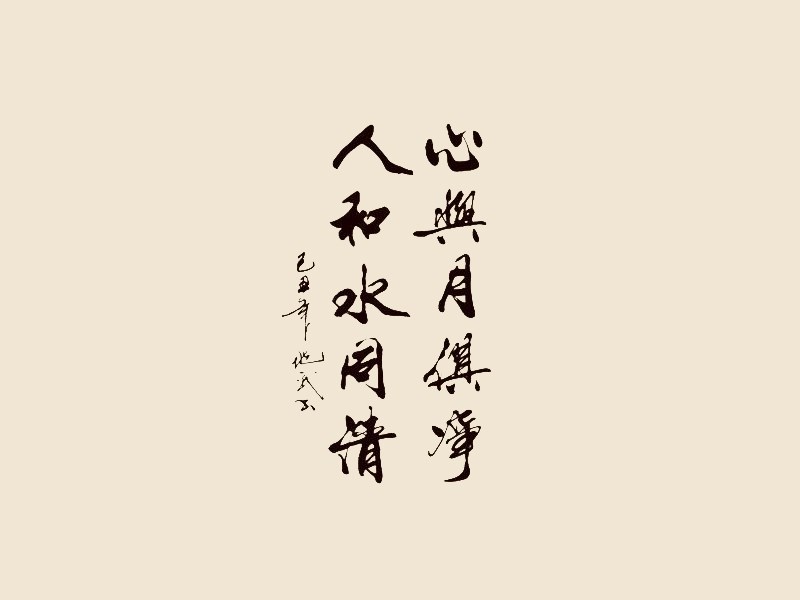 心與月俱凈
人和水同清
己丑年